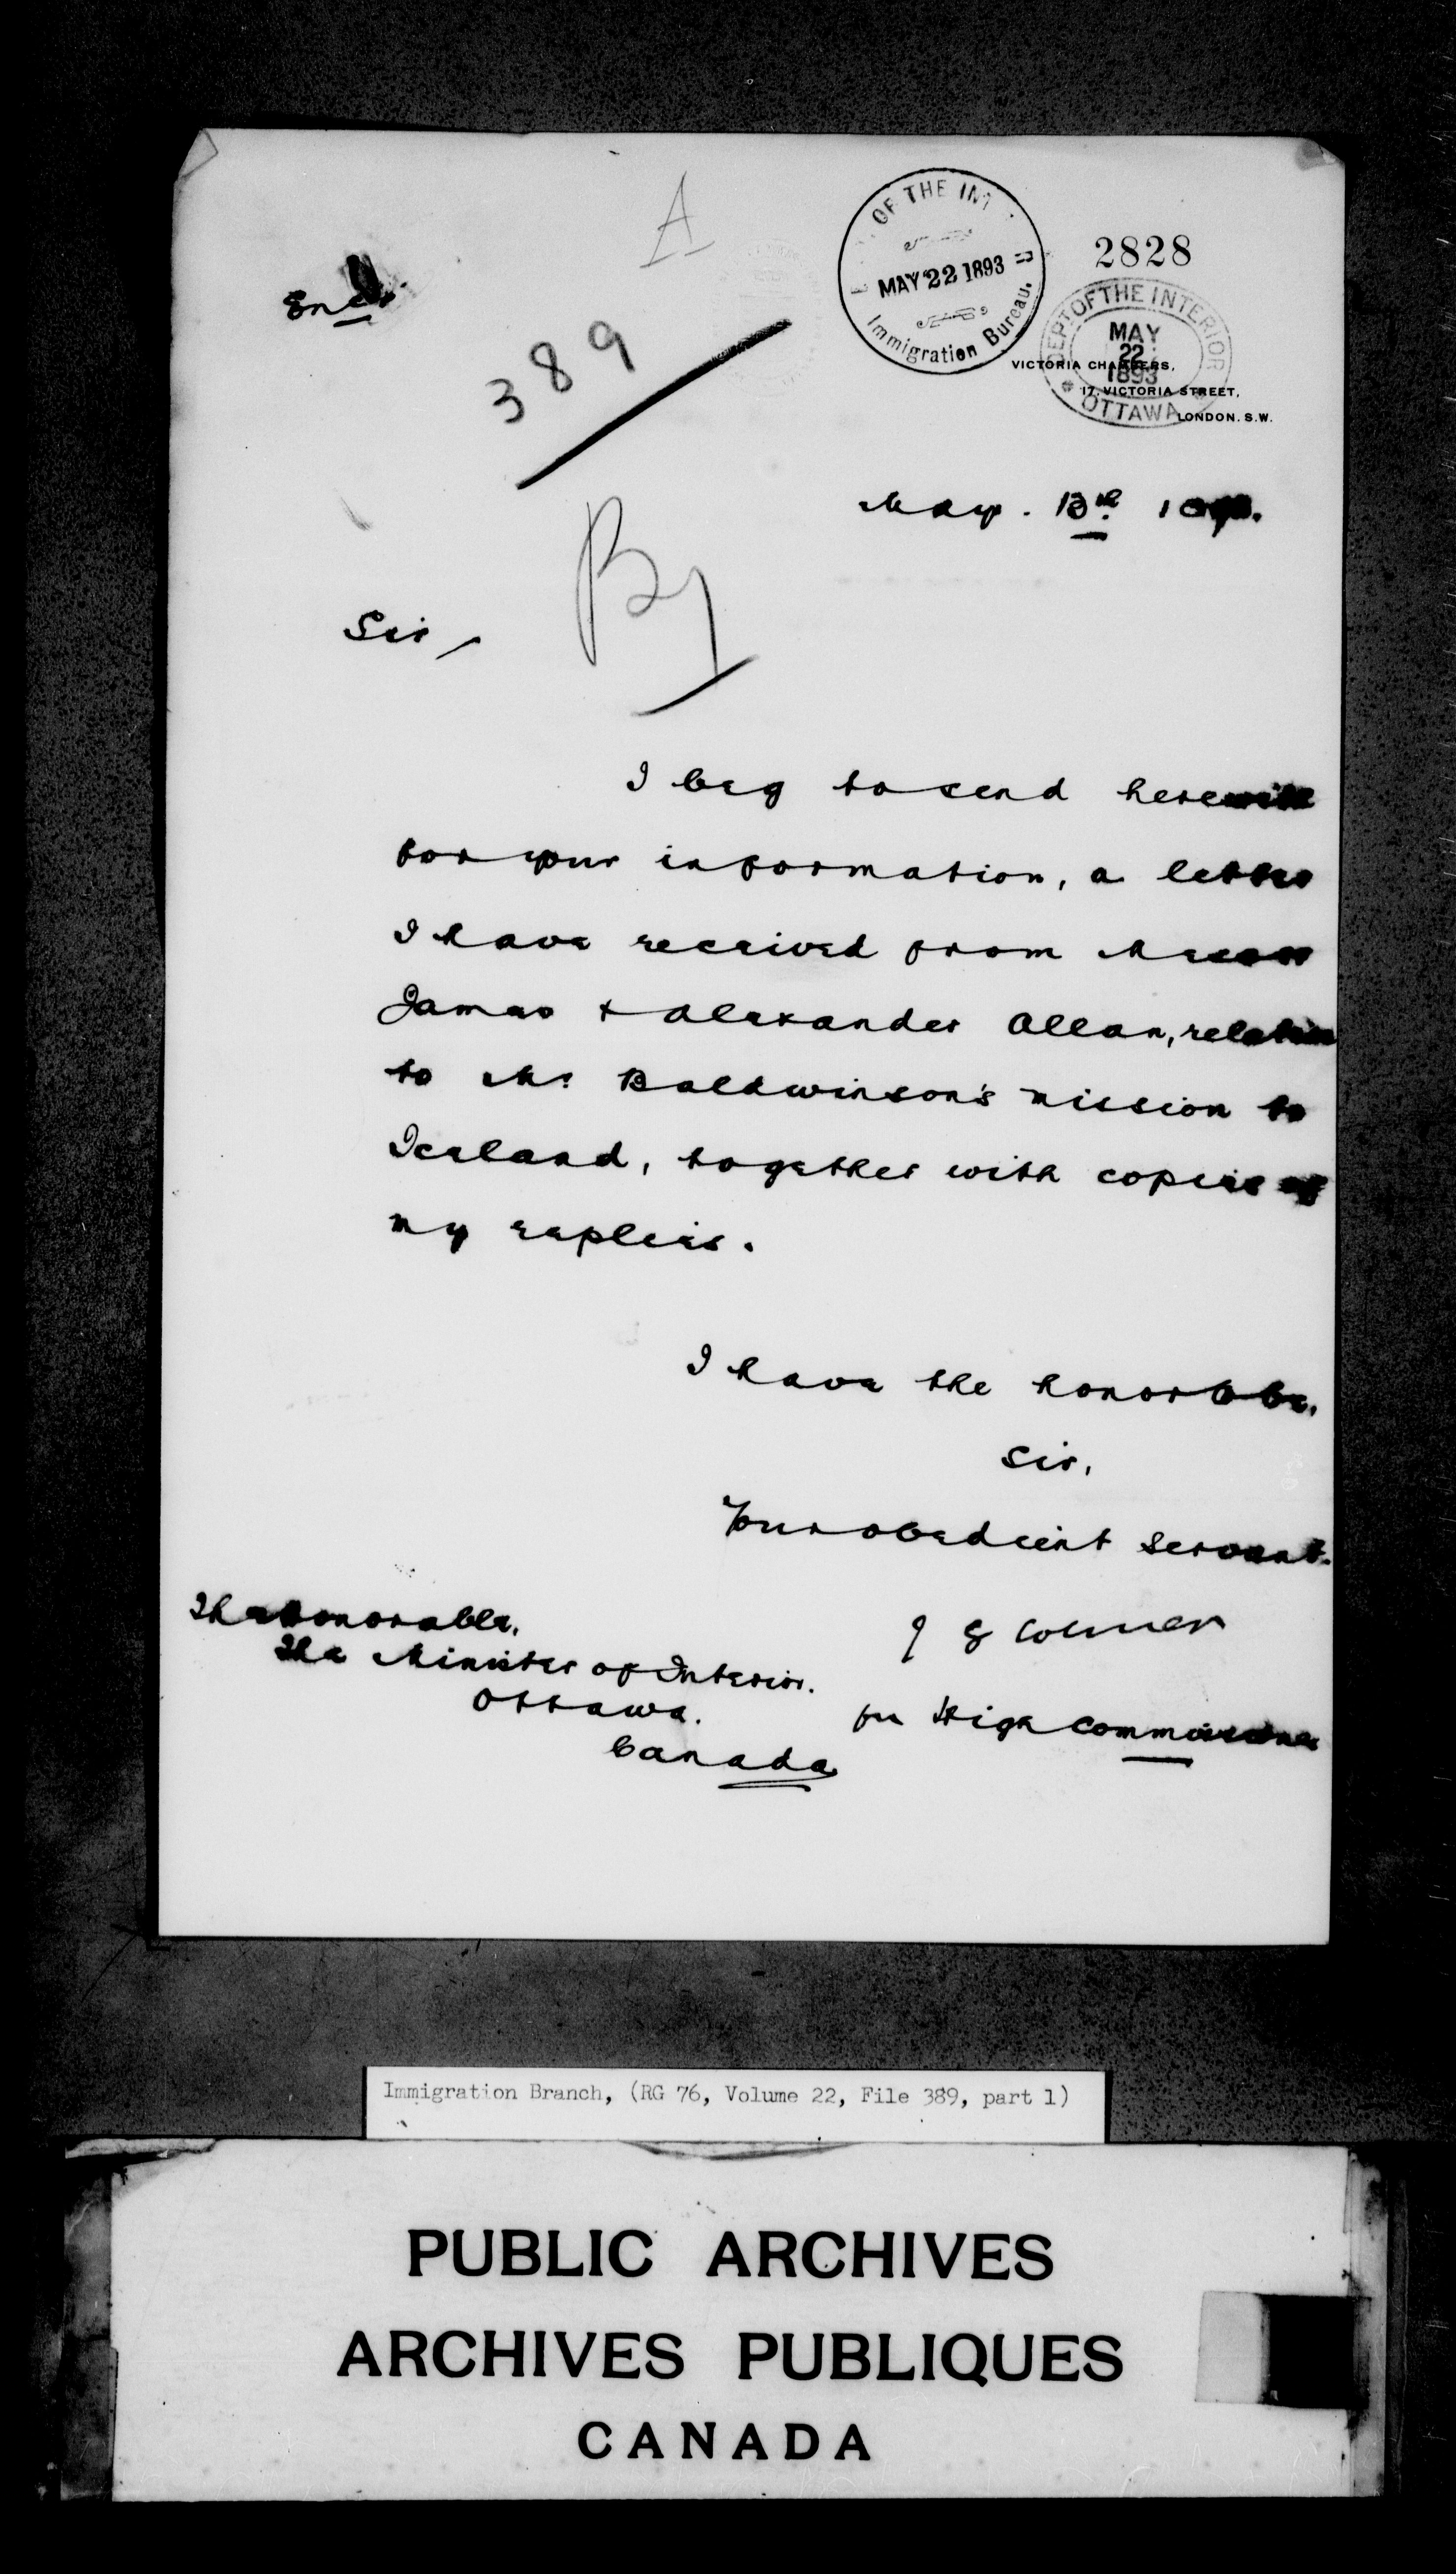 A
OF THE INT
MAY 22 1893
Immigration Bureau.
2828
DEPT OF THE INTERIOR
MAY
22
1893
OTTAWA
VICTORIA CHAMBERS,
17, VICTORIA STREET,
LONDON. S.W.
389
May. 13th
Sir,
I beg to send herewith
for your information, a letter
I have received from Messrs
James & Alexander Allan, relative
to Mr Baldwinson's mission to
Iceland, together with copies of
my replies.
I have the honor to be,
Sir,
Your obedient Servant.
J G Colmer
for High Commissioner
The Honorable,
The Minister of Interior.
Ottawa.
Canada
Immigration Branch, (RG 76, Volume 22, File 389, part 1)
PUBLIC ARCHIVES
ARCHIVES PUBLIQUES
CANADA